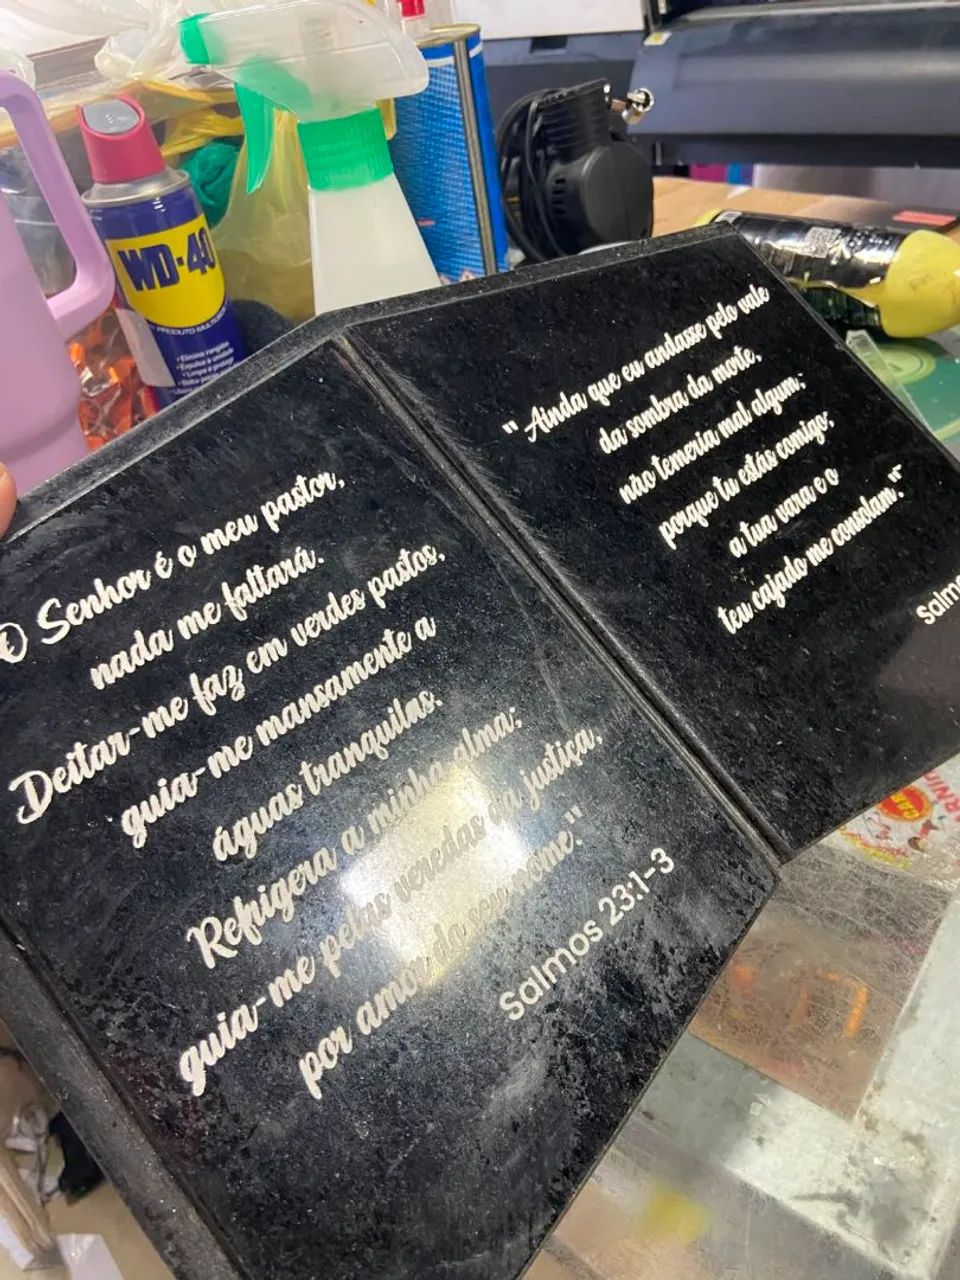 WD-40
PRODUTO MULTIUSOS
• Elimina rangidos
• Expulsa a umidade
• Limpa e protege
O Senhor é o meu pastor,
nada me faltará.
Deitar-me faz em verdes pastos,
guia-me mansamente a
águas tranquilas.
Refrigera a minha alma;
guia-me pelas veredas da justiça,
por amor do seu nome."
Salmos 23:1-3
"Ainda que eu andasse pelo vale
da sombra da morte,
não temeria mal algum;
porque tu estás comigo;
a tua vara e o
teu cajado me consolam."
Salmo